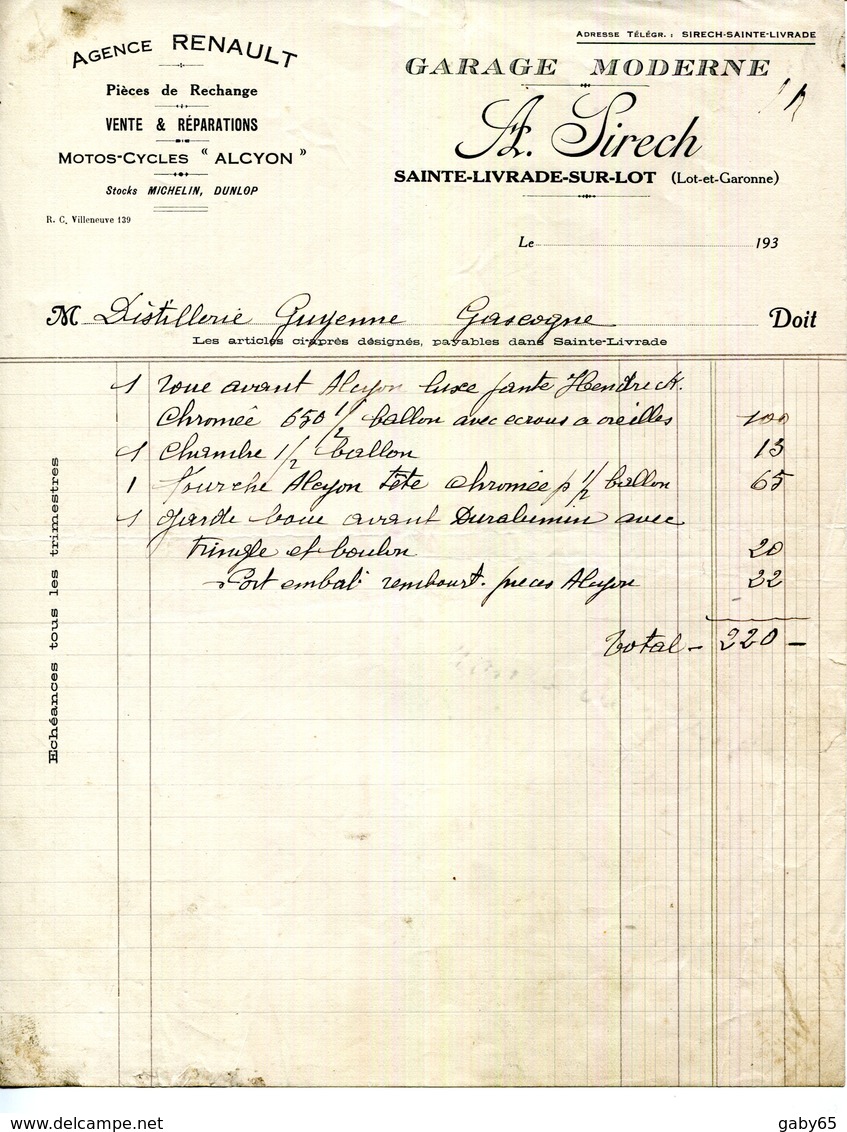 Adresse Télégr. : SIRECH-SAINTE-LIVRADE
Agence RENAULT
Pièces de Rechange
VENTE & RÉPARATIONS
Motos-Cycles “ ALCYON ”
Stocks MICHELIN, DUNLOP
R. C. Villeneuve 139
GARAGE MODERNE
A. Sirech
SAINTE-LIVRADE-SUR-LOT (Lot-et-Garonne)
Le 193
M Distillerie Guyenne Gascogne Doit
Les articles ci-après désignés, payables dans Sainte-Livrade
Echéances tous les trimestres
1 roue avant Alcyon luxe jante Hendrick.
Chromée 650 1/2 ballon avec ecrous a oreilles 100
1 Chambre 1/2 ballon 13
1 fourche Alcyon tête chromée p 1/2 ballon 65
1 garde boue avant Duralumin avec
tringle et boulon 20
Port embal rembourt. pieces Alcyon 22
Total - 220 -
www.delcampe.net
gaby65